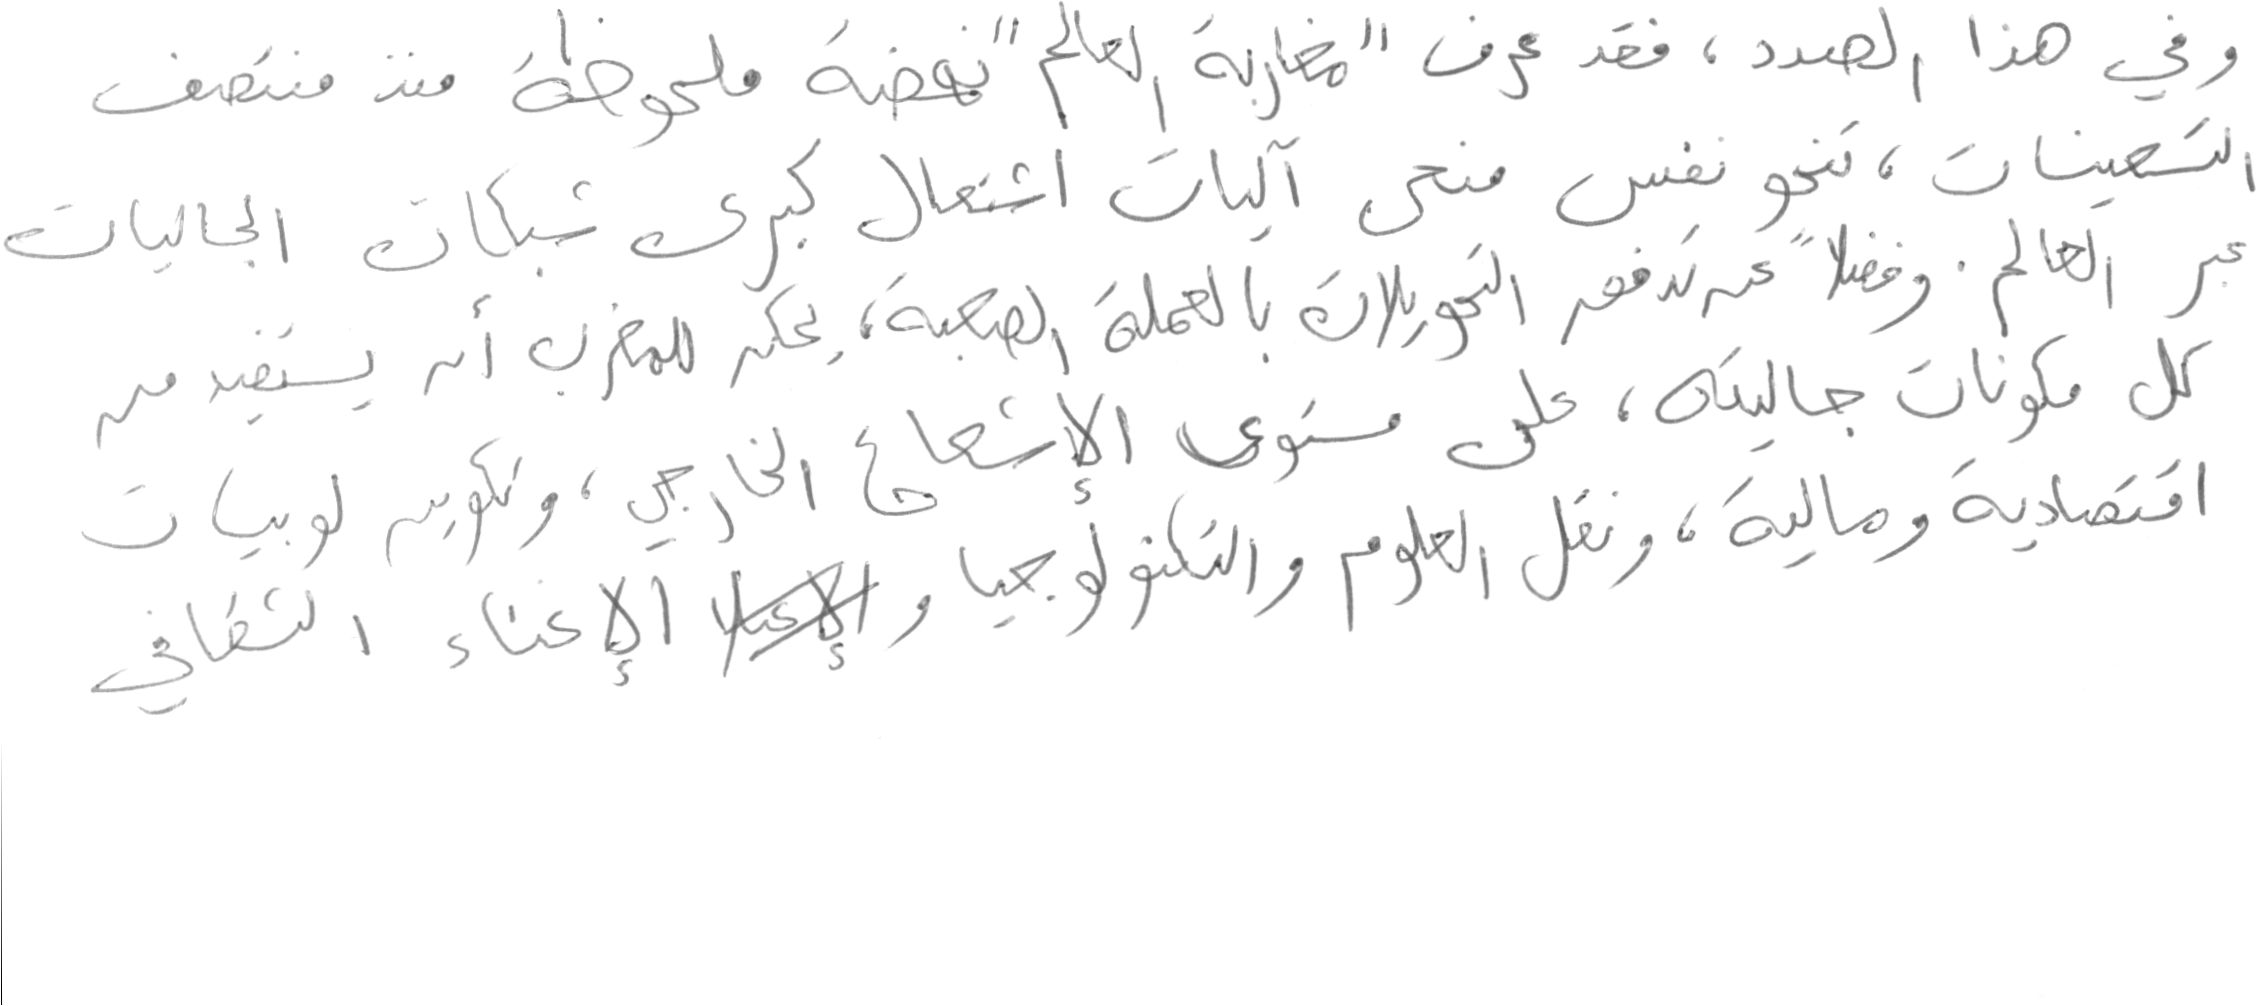 وفي هذا الصدد، فقد عرف "مغاربة العالم" نهضة ملحوظة منذ منتصف
التسعينات، تنحو نفس منحى آليات اشتغال كبرى شبكات الجاليات
عبر العالم. وفضلاً عن تدفق التحويلات بالعملة الصعبة، يمكن للمغرب أن يستفيد من
كل مكونات جاليته، على مستوى الإشعاع الخارجي، وتكوين لوبيات
اقتصادية ومالية، ونقل العلوم والتكنولوجيا و الإغناء الثقافي